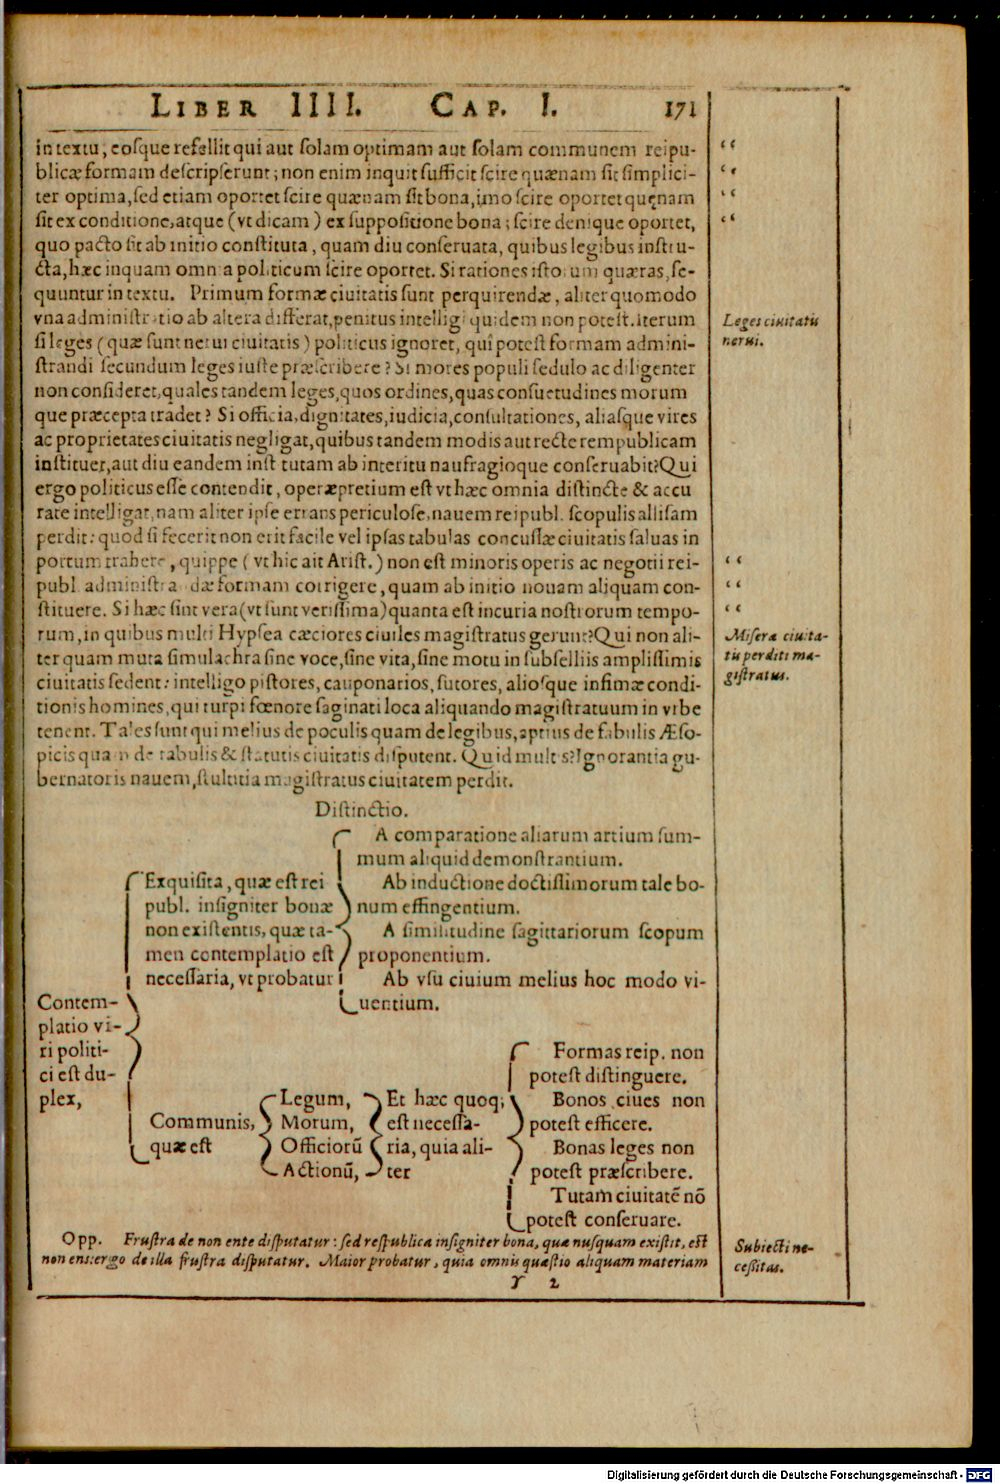 LIBER IIII. CAP. I. 171
in textu, eosque refellit qui aut solam optimam aut solam communem reipu-
blicæ formam descripserunt; non enim inquit sufficit scire quænam sit simplici-
ter optima, sed etiam oportet scire quænam sit bona, imo scire oportet quęnam
sit ex conditione, atque (vt dicam) ex suppositione bona; scire denique oportet,
quo pacto sit ab initio constituta, quam diu conseruata, quibus legibus instru-
cta, hæc inquam omnia politicum scire oportet. Si rationes istorum quæras, se-
quuntur in textu. Primum formæ ciuitatis sunt perquirendæ, aliter quomodo
vna administratio ab altera differat, penitus intelligi quidem non potest. iterum
si leges (quæ sunt nerui ciuitatis) politicus ignoret, quî potest formam admini-
strandi secundum leges iuste præscribere? Si mores populi sedulo ac diligenter
non consideret, quales tandem leges, quos ordines, quas consuetudines morum
que præcepta tradet? Si officia, dignitates, iudicia, consultationes, aliasque vires
ac proprietates ciuitatis negligat, quibus tandem modis aut recte rempublicam
instituet, aut diu eandem institutam ab interitu naufragioque conseruabit? Qui
ergo politicus esse contendit, operæpretium est vt hæc omnia distincte & accu
rate intelligat, nam aliter ipse errans periculose, nauem reipubl. scopulis allisam
perdit: quod si fecerit non erit facile vel ipsas tabulas concussæ ciuitatis saluas in
portum trahere, quippe (vt hic ait Arist.) non est minoris operis ac negotii rei-
publ. administrandæ formam corrigere, quam ab initio nouam aliquam con-
stituere. Si hæc sint vera (vt sunt verissima) quanta est incuria nostrorum tempo-
rum, in quibus multi Hypsea cæciores ciuiles magistratus gerunt? Qui non ali-
ter quam muta simulachra sine voce, sine vita, sine motu in subselliis amplissimis
ciuitatis sedent: intelligo pistores, cauponarios, sutores, aliosque infimæ condi-
tionis homines, qui turpi fœnore saginati loca aliquando magistratuum in vrbe
tenent. Tales sunt qui melius de poculis quam de legibus, aptius de fabulis Æso-
picis quam de tabulis & statutis ciuitatis disputent. Quid multis? Ignorantia gu-
bernatoris nauem, stultitia magistratus ciuitatem perdit.
“
“
“
“
Leges ciuitatis
nerui.
“
“
“
Misera ciuita-
tis perditi ma-
gistratus.
Distinctio.
Contem-
platio vi-
ri politi-
ci est du-
plex,
Exquisita, quæ est rei
publ. insigniter bonæ
non existentis, quæ ta-
men contemplatio est
necessaria, vt probatur
A comparatione aliarum artium sum-
mum aliquid demonstrantium.
Ab inductione doctissimorum tale bo-
num effingentium.
A similitudine sagittariorum scopum
proponentium.
Ab vsu ciuium melius hoc modo vi-
uentium.
Communis,
quæ est
Legum,
Morum,
Officiorũ
Actionũ,
Et hæc quoq;
est necessa-
ria, quia ali-
ter
Formas reip. non
potest distinguere.
Bonos ciues non
potest efficere.
Bonas leges non
potest præscribere.
Tutam ciuitatẽ nõ
potest conseruare.
Opp. Frustra de non ente disputatur: sed respublica insigniter bona, quæ nusquam existit, est
non ens: ergo de illa frustra disputatur. Maior probatur, quia omnis quæstio aliquam materiam
Subiecti ne-
cessitas.
Y 2
Digitalisierung gefördert durch die Deutsche Forschungsgemeinschaft - DFG